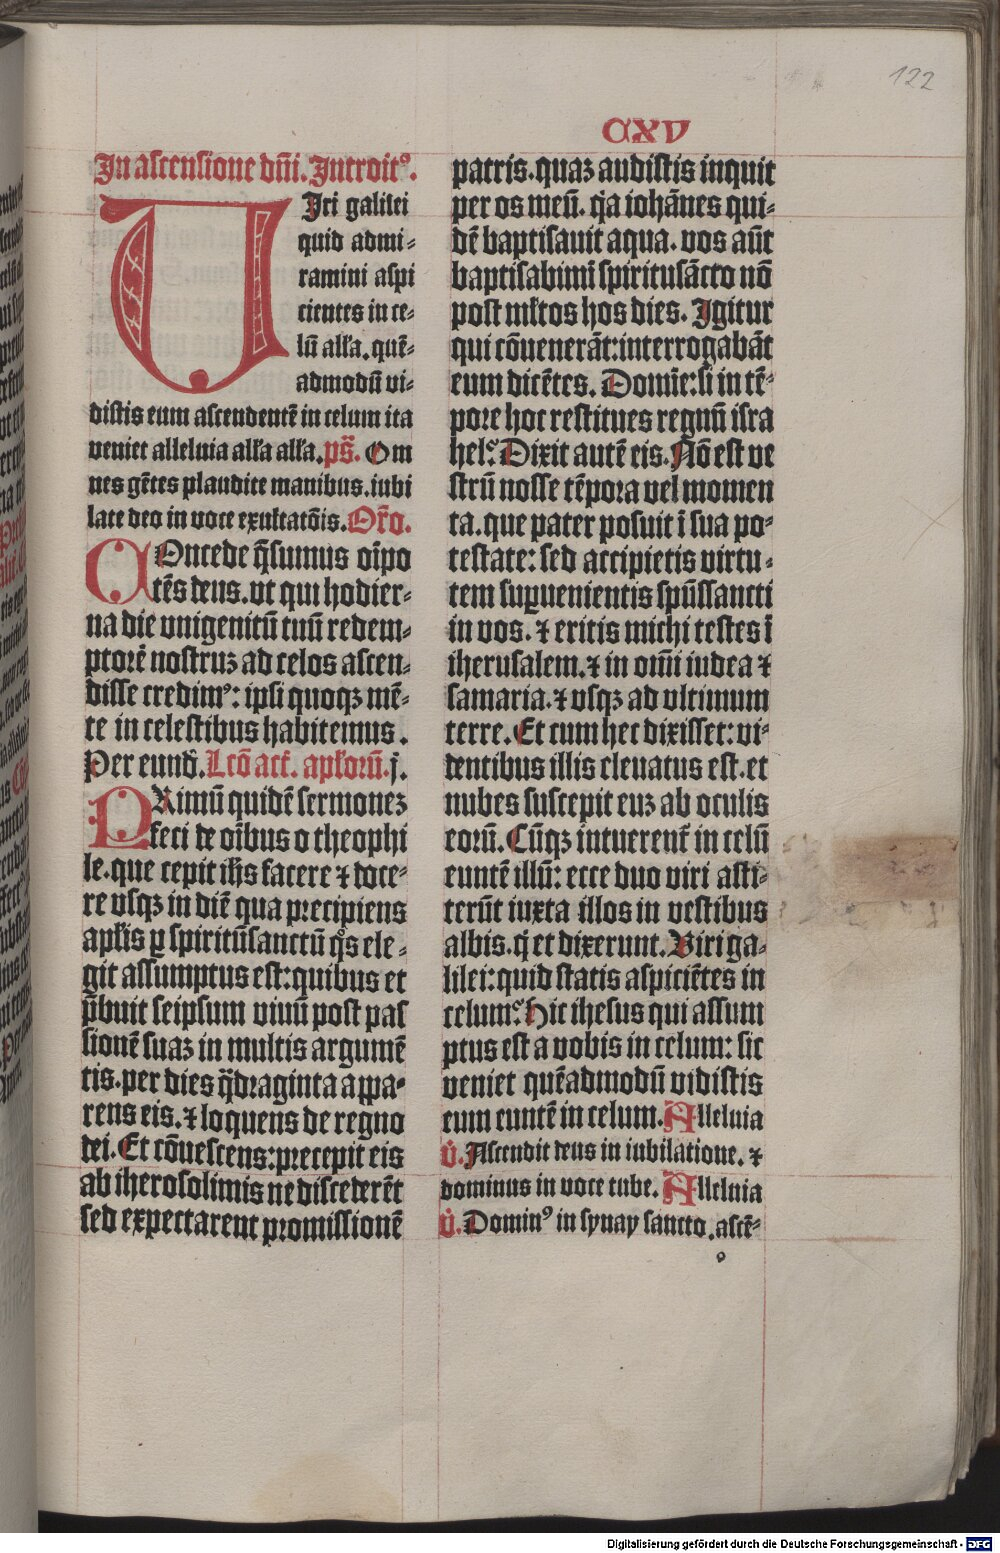 122
CXV
In ascensione dñi. Introitꝰ.
Viri galilei
quid admi-
ramini aspi
cientes in ce-
lū alľa. quē-
admodū vi-
distis eum ascendentē in celum ita
veniet alleluia alľa alľa. ps̄. Om
nes gētes plaudite manibus. iubi
late deo in voce exultatōis. Oro.
COncede q̄sumus oīpo
tēs deus. vt qui hodier-
na die vnigenitū tuū redem-
ptorē nostruꝫ ad celos ascen-
disse credimꝰ: ipsi quoqꝫ mē-
te in celestibus habitemus.
Per eund̄. Lcō act. apľorū. j.
PRimū quidē sermoneꝫ
feci de oībus o theophi
le. que cepit ihs̄ facere ⁊ doce-
re vsqꝫ in diē qua precipiens
apľis ꝑ spiritūsanctū q̊s ele-
git assumptus est: quibus et
p̄buit seipsum viuū post pas
sionē suaꝫ in multis argumē
tis. per dies q̄draginta appa-
rens eis. ⁊ loquens de regno
dei. Et cōuescens: precepit eis
ab iherosolimis ne discederēt
sed expectarent promissionē
patris. quaꝫ audistis inquit
per os meū. q̇a iohānes qui-
dē baptisauit aqua. vos aūt
baptisabimī spiritusācto nō
post mľtos hos dies. Igitur
qui cōuenerāt: interrogabāt
eum dicētes. Domīe: si in tē-
pore hoc restitues regnū isra
hel? Dixit autē eis. Nō est ve
strū nosse tēpora vel momen
ta. que pater posuit ī sua po-
testate: sed accipietis virtu-
tem suꝑuenientis spūssancti
in vos. ⁊ eritis michi testes ī
iherusalem. ⁊ in omī iudea ⁊
samaria. ⁊ vsqꝫ ad vltimum
terre. Et cum hec dixisset: vi-
dentibus illis eleuatus est. et
nubes suscepit euꝫ ab oculis
eorū. Cūqꝫ intuerent̄ in celū
euntē illū: ecce duo viri asti-
terūt iuxta illos in vestibus
albis. q̇ et dixerunt. Viri ga-
lilei: quid statis aspiciētes in
celum? Hic ihesus qui assum
ptus est a vobis in celum: sic
veniet quēadmodū vidistis
eum euntē in celum. Alleluia
v̇. Ascendit deus in iubilatione. ⁊
dominus in voce tube. Alleluia
v̇. Dominꝰ in synay sancto. ascē-
o
Digitalisierung gefördert durch die Deutsche Forschungsgemeinschaft - DFG